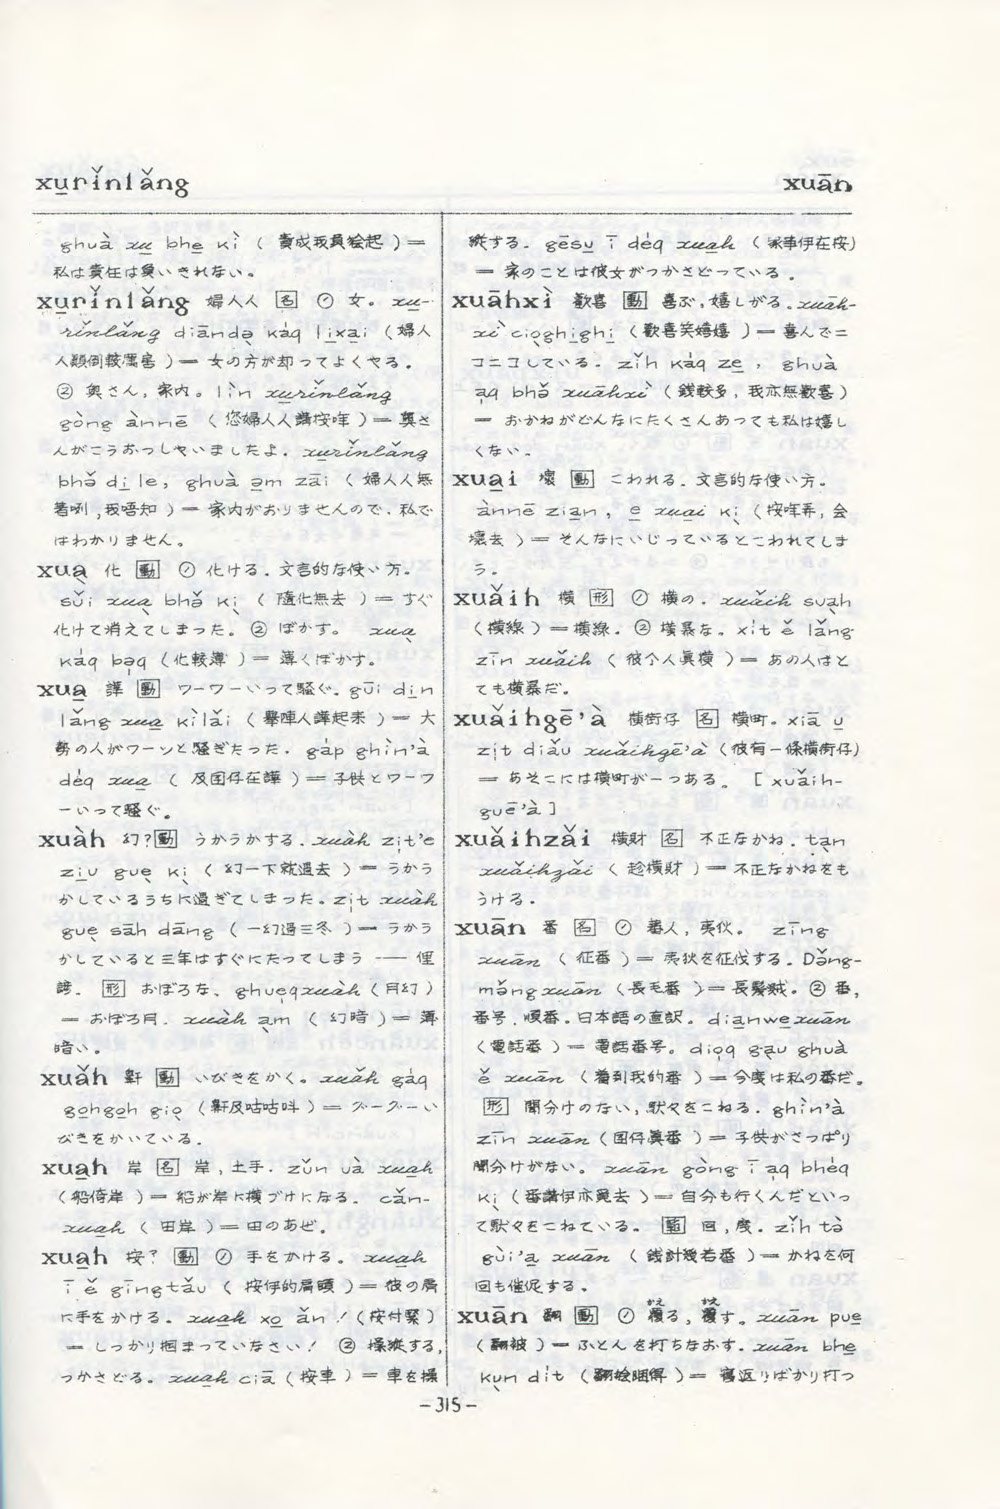 xu̱rǐnlǎng
xuān
ghuà xu̱ bhe̱ kì ( 責成我負絵起 ) ═
私は責任は負いきれない。
xu̱rǐnlǎng 婦人人 [名] ① 女。 xu̱-
rǐnlǎng diāndə káq li̱xa̱i ( 婦人
人顚倒較厲害 ) ═ 女の方が却ってよくやる。
② 奥さん,家内。 lìn xu̱rǐnlǎng
gòng ànnē ( 您婦人人講按哖 ) ═ 奥さ
んがこうおっしゃいましたよ。 xu̱rǐnlǎng
bhə̌ di̱ le, ghuà a̱m zāi ( 婦人人無
著咧,我唔知 ) ═ 家内がおりませんので,私で
はわかりません。
xua̱ 化 [動] ① 化ける。文言的な使い方。
sǔi xua̱ bhə̌ ki̱ ( 隨化無去 ) ═ すぐ
化けて消えてしまった。 ② ぼかす。 xua̱
káq bəq (化較薄 ) ═ 薄くぼかす。
xua̱ 譁 [動] ワーワーいって騒ぐ。 gūi di̱n
lǎng xua̱ kìlǎi ( 擧陣人譁起来 ) ═ 大
勢の人がワーンと騒ぎたった。 gáp ghìn'à
déq xua̱ ( 及囝仔在譁 ) ═ 子供とワーワ
ーいって騒ぐ。
xuàh 幻? [動] うかうかする。 xuàh zi̱t'e
ziu gue̱ ki̱ ( 幻一下就過去 ) ═ うかう
かしているうちに過ぎてしまった。 zi̱t xuàh
gue̱ sāh dāng ( 一幻過三冬 ) ═ うかう
かしていると三年はすぐにたってしまう —— 俚
諺。 [形] おぼろな。 ghue̱qxuàh (月幻)
═ おぼろ月。 xuàh a̱m ( 幻暗 ) ═ 薄
暗い。
xuǎh 鼾 [動] いびきをかく。 xuǎh gáq
go̱hgo̱h gio̱ (鼾及咕咕叫 ) ═ グーグーい
びきをかいている。
xua̱h 岸 [名] 岸,土手。 zǔn uà xua̱h
(船倚岸 ) ═ 船が岸に横づけになる。 cǎn-
xua̱h ( 田岸 ) ═ 田のあぜ。
xua̱h 按? [動] ① 手をかける。 xua̱h
ī ě gīngtǎu ( 按伊的肩頭 ) ═ 彼の肩
に手をかける。 xua̱h xo̱ ǎn! (按付緊)
═ しっかり掴まっていなさい! ② 操縦する,
つかさどる。 xua̱h ciā (按車 ) ═ 車を操
縦する。 gēsu̱ ī déq xua̱h (家事伊在按)
═ 家のことは彼女がつかさどっている。
xuāhxì 歡喜 [動] 喜ぶ,嬉しがる。 xuāh-
xì ciọghighi (歡喜笑嬉嬉 ) ═ 喜んでニ
コニコしている。 zǐh káq ze̱, ghuà
a̱q bhə̌ xuāhxì ( 錢較多,我亦無歡喜)
═ おかねがどんなにたくさんあっても私は嬉し
くない。
xua̱i 壞 [動] こわれる。文言的な使い方。
ànnē zia̱n, e̱ xua̱i ki̱ (按哖弄,会
壞去 ) ═ そんなにいじっているとこわれてしま
う。
xuǎih 横 [形] ① 横の。 xuǎih sua̱h
(横線 ) ═ 横線。 ② 横暴な。 xit ě lǎng
zīn xuǎih ( 彼个人眞横 ) ═ あの人はと
ても横暴だ。
xuǎihgē'à 横街仔 [名] 横町。 xiā u̱
zi̱t diǎu xuǎihgē'à (彼有一條横街仔)
═ あそこには横町が一つある。 [ xuǎih-
guē'à ]
xuǎihzǎi 横財 [名] 不正なかね。 ta̱n
xuǎihzǎi ( 趁横財 ) ═ 不正なかねをも
うける。
xuān 番 [名] ① 蕃人,夷狄。 zīng
xuān ( 征番 ) ═ 夷狄を征伐する。 Dǎng-
mǎng xuān (長毛番 ) ═ 長髪賊。 ② 番,
番号,順番。日本語の直訳。 dia̱nwe̱xuān
(電話番 ) ═ 電話番号。 diọq ga̱u ghuà
ě xuān (着到我的番 ) ═ 今度は私の番だ。
[形] 聞分けのない,駄々をこねる。 ghìn'à
zīn xuān (囝仔眞番 ) ═ 子供がさっぱり
聞分けがない。 xuān gòng ī a̱q bhéq
ki̱ ( 番講伊亦覓去 ) ═ 自分も行くんだといっ
て駄々をこねている。 回,度。 zǐh tə̀
gùi'a̱ xuān ( 錢討幾若番 ) ═ かねを何
回も催促する。
xuān 翻 [動] ① 覆る,覆す。 xuān pue̱
( 翻被 ) ═ ふとんを打ちなおす。 xuān bhe̱
kun dit (翻絵睏得 ) ═ 寝返りばかり打っ
-315-